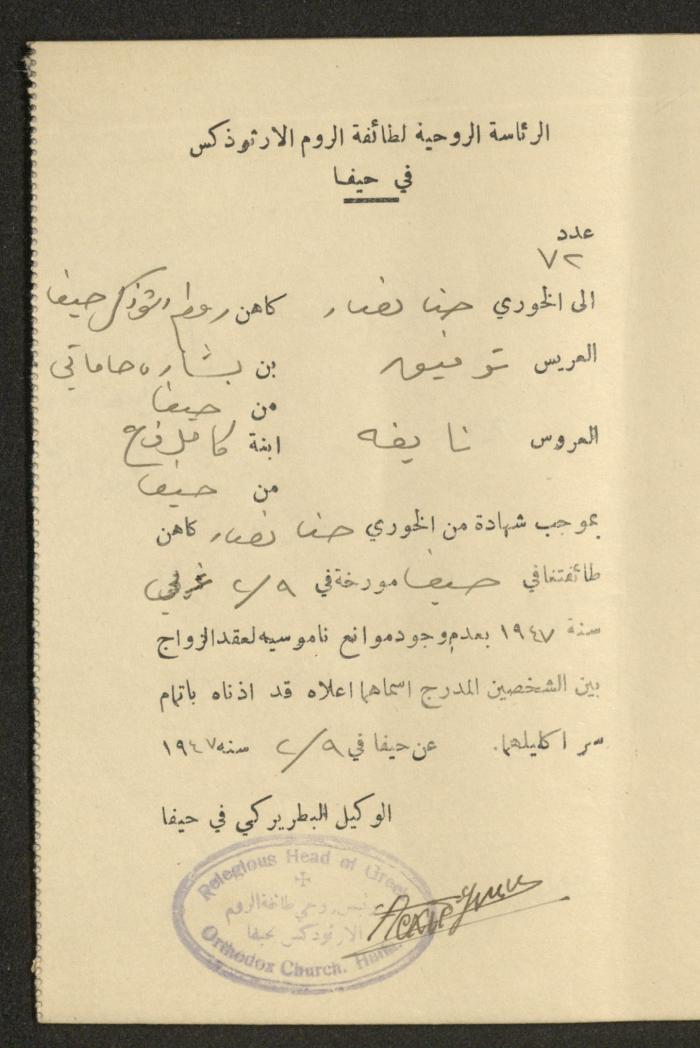 الرئاسة الروحية لطائفة الروم الارثوذكس
في حيفا
عدد
٧٢
الى الخوري حنا نصار كاهن روم ارثوذكس حيفا
العريس توفيق بن بشاره حاماتي
من حيفا
العروس نايفه ابنة كامل فرح
من حيفا
بموجب شهادة من الخوري حنا نصار كاهن
طائفتنا في حيفا مورخة في ٢/٩ غربي
سنة ١٩٤٧ بعدم وجود موانع ناموسيه لعقد الزواج
بين الشخصين المدرج اسماهما اعلاه قد اذناه باتمام
سر اكليلهما. عن حيفا في ٢/٩ سنه ١٩٤٧
الوكيل البطريركي في حيفا
Relegious Head of Greek
رئيس روحي طائفة الروم
الارثوذكس بحيفا
Orthodox Church. Haifa